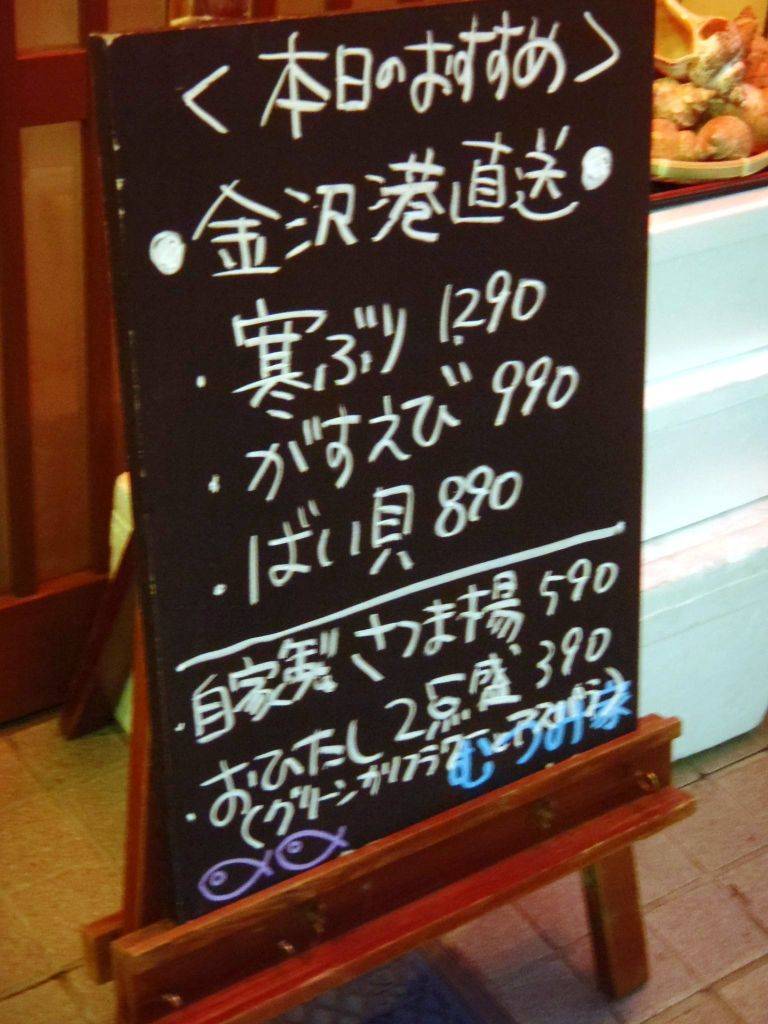 ＜本日のおすすめ＞
●金沢港直送●
・寒ぶり 1,290
・がすえび 990
・ばい貝 890
・自家製さつま揚 590
・おひたし2点盛 390
(グリーンカリフラワーとアスパラ)
むつみ家